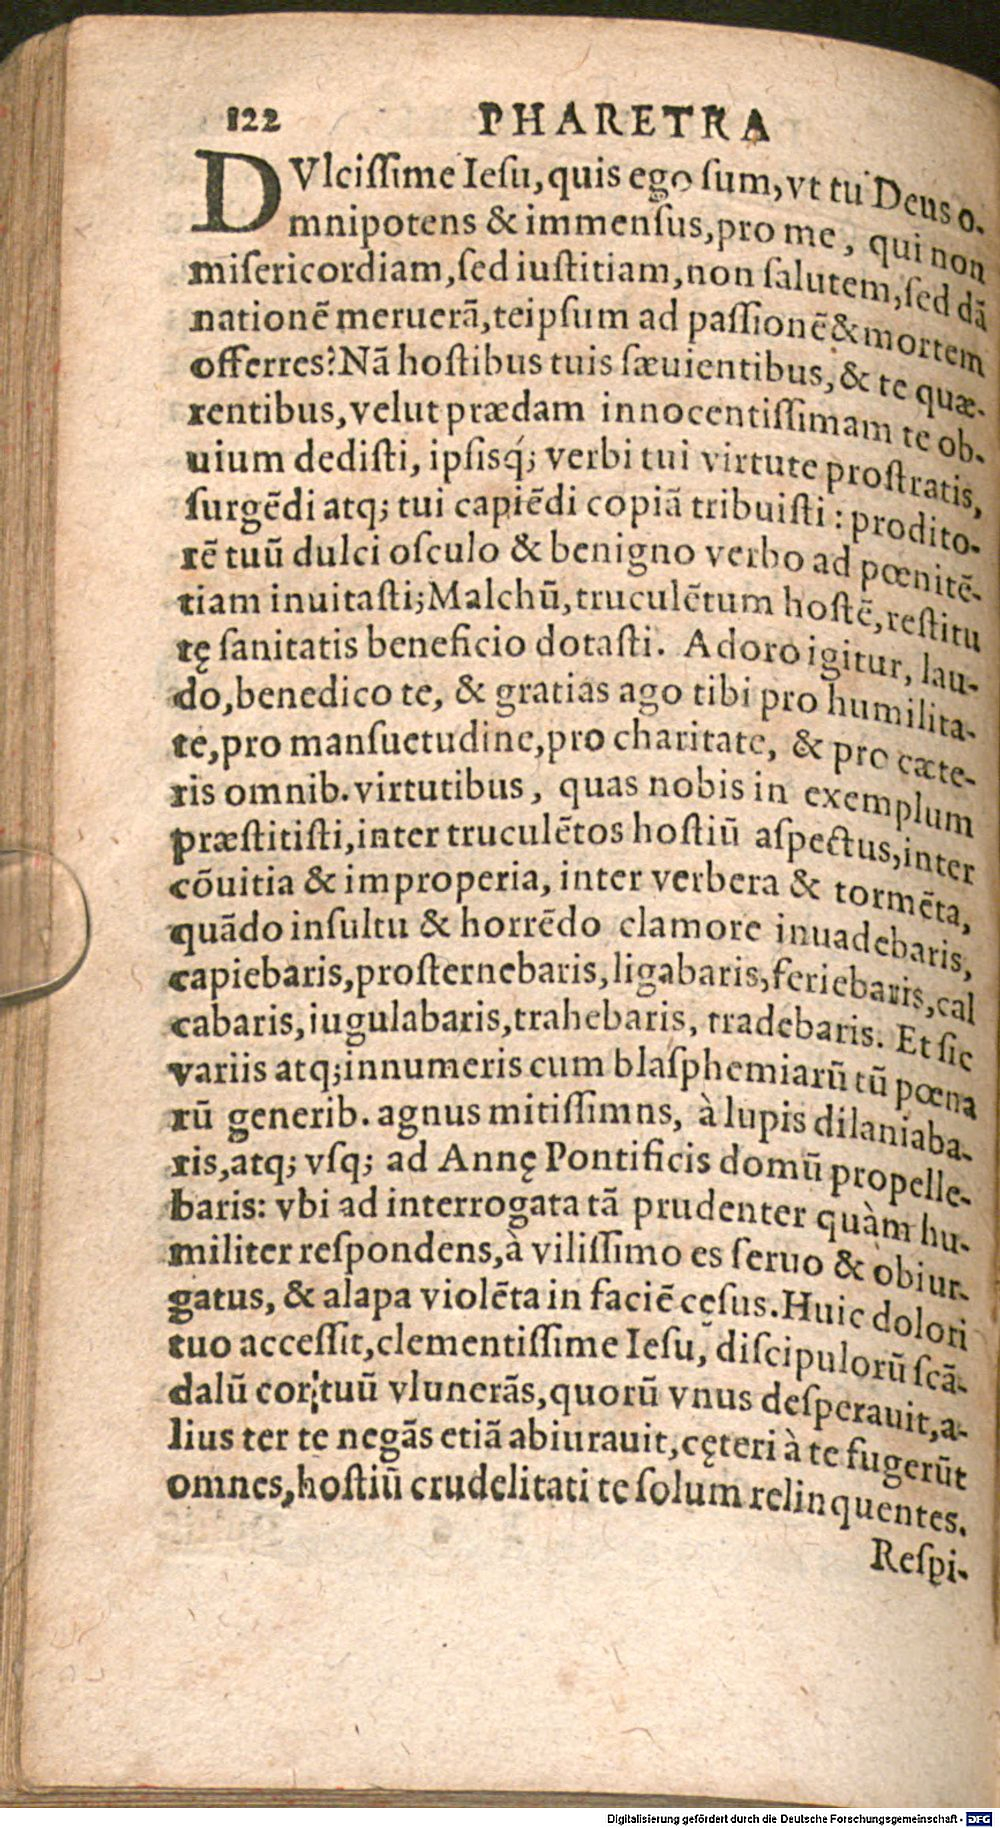 122 PHARETRA
DVlcissime Iesu, quis ego sum, vt tu Deus o-
mnipotens & immensus, pro me, qui non
misericordiam, sed iustitiam, non salutem, sed dã
nationẽ meruerã, teipsum ad passionẽ & mortem
offerres? Nã hostibus tuis sæuientibus, & te quæ-
rentibus, velut prædam innocentissimam te ob-
uium dedisti, ipsisq́; verbi tui virtute prostratis,
surgẽdi atq; tui capiẽdi copiã tribuisti: prodito-
rẽ tuũ dulci osculo & benigno verbo ad pœnitẽ-
tiam inuitasti; Malchũ, truculẽtum hostẽ, restitu
tę sanitatis beneficio dotasti. Adoro igitur, lau-
do, benedico te, & gratias ago tibi pro humilita-
te, pro mansuetudine, pro charitate, & pro cæte-
ris omnib. virtutibus, quas nobis in exemplum
præstitisti, inter truculẽtos hostiũ aspectus, inter
cõuitia & improperia, inter verbera & tormẽta,
quãdo insultu & horrẽdo clamore inuadebaris,
capiebaris, prosternebaris, ligabaris, feriebaris, cal
cabaris, iugulabaris, trahebaris, tradebaris. Et sic
variis atq; innumeris cum blasphemiarũ tũ pœna
rũ generib. agnus mitissimns, à lupis dilaniaba-
ris, atq; vsq; ad Annę Pontificis domũ propelle-
baris: vbi ad interrogata tã prudenter quàm hu-
militer respondens, à vilissimo es seruo & obiur-
gatus, & alapa violẽta in faciẽ cęsus. Huic dolori
tuo accessit, clementissime Iesu, discipulorũ scã-
dalũ cor tuũ vlunerãs, quorũ vnus desperauit, a-
lius ter te negãs etiã abiurauit, cęteri à te fugerũt
omnes, hostiũ crudelitati te solum relinquentes.
Respi-
Digitalisierung gefördert durch die Deutsche Forschungsgemeinschaft - DFG